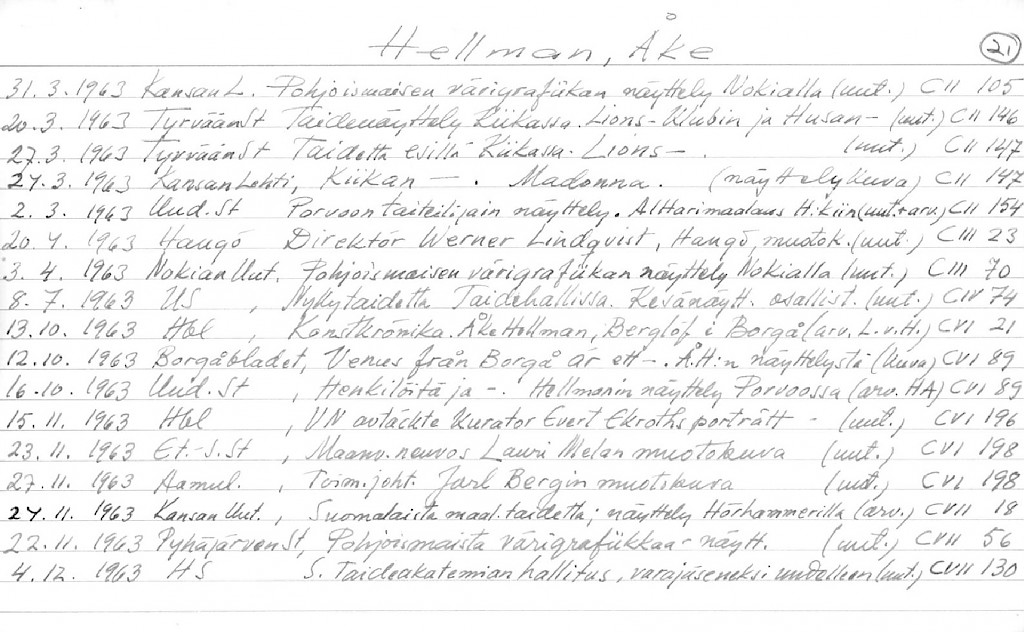 Hellman, Åke 21
31.3.1963 Kansan L. Pohjoismaisen värigrafiikan näyttely Nokialla (uut.) CII 105
20.3.1963 TyrväänSt Taidenäyttely Kiikassa. Lions-Klubin ja Husan- (uut.) CII 146
27.3.1963 TyrväänSt Taidetta esillä Kiikassa. Lions- . (uut.) CII 147
27.3.1963 Kansan Lehti, Kiikan - . Madonna. (näyttelykuva) CII 147
2.3.1963 Uud.St Porvoon taiteilijain näyttely. Alttarimaalaus H.kiin (uut.+arv.) CII 154
20.4.1963 Hangö Direktör Werner Lindqvist, Hangö, muotok. (uut.) CIII 23
3.4.1963 Nokian Uut. Pohjoismaisen värigrafiikan näyttely Nokialla (uut.) CIII 70
8.7.1963 US , Nykytaidetta Taidehallissa. Kesänäytt. osallist. (uut.) CIV 74
13.10.1963 Hbl , Konstkrönika. Åke Hellman, Berglöf i Borgå (arv. L.v.H.) CVI 21
12.10.1963 Borgåbladet, Venus från Borgå är ett -. Å.H:n näyttelystä (kuva) CVI 89
16.10.1963 Uud.St , Henkilöitä ja -. Hellmanin näyttely Porvoossa (arv. HA) CVI 89
15.11.1963 Hbl , VN avtäckte Kurator Evert Ekroths porträtt - (uut.) CVI 196
23.11.1963 Et.-S.St , Maanv.neuvos Lauri Melan muotokuva (uut.) CVI 198
27.11.1963 Aamul. , Toim.joht. Jarl Bergin muotokuva (uut.) CVI 198
24.11.1963 Kansan Uut. , Suomalaista maal.taidetta; näyttely Hörhammerilla (arv.) CVII 18
22.11.1963 PyhäjärvenSt, Pohjoismaista värigrafiikkaa- näytt. (uut.) CVII 56
4.12.1963 HS S. Taideakatemian hallitus, varajäseneksi uudelleen (uut.) CVII 130